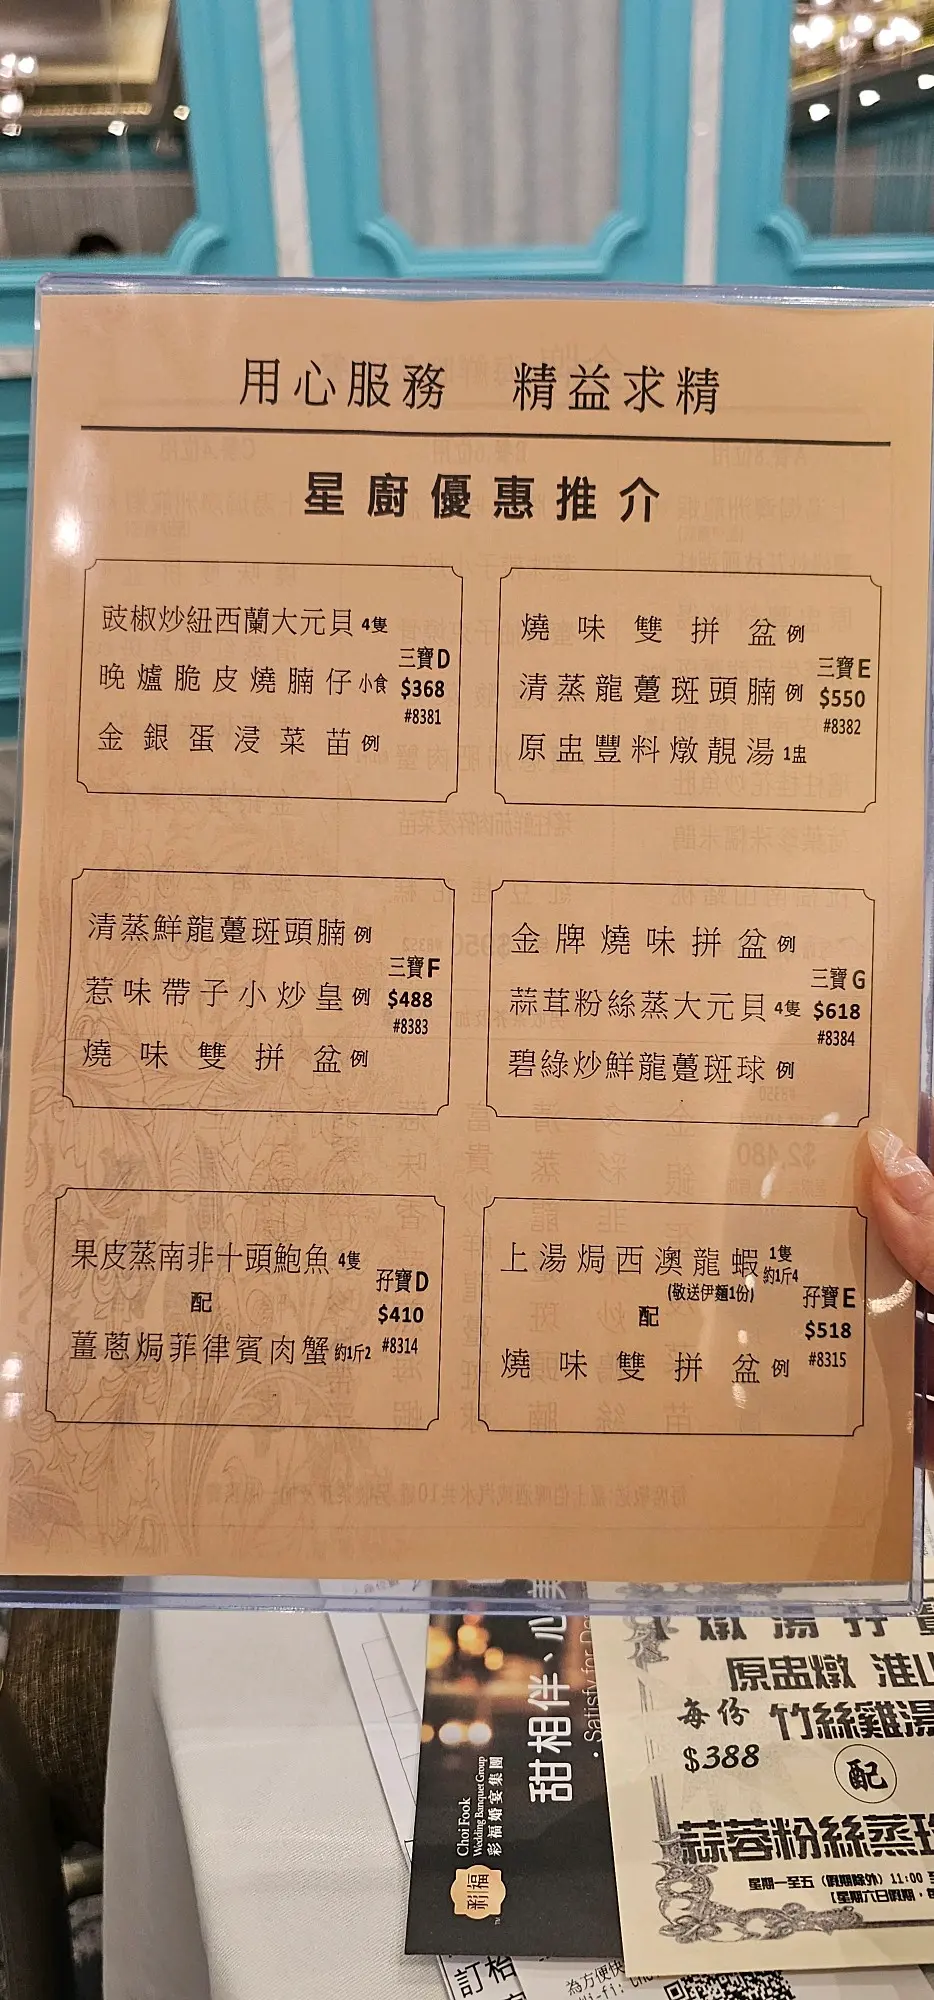 用心服務 精益求精
星廚優惠推介
豉椒炒紐西蘭大元貝 4隻
晚爐脆皮燒腩仔 小食
金銀蛋浸菜苗 例
三寶D
$368
#8381
燒味雙拼盆 例
清蒸龍躉斑頭腩 例
原盅豐料燉靚湯 1盅
三寶E
$550
#8382
清蒸鮮龍躉斑頭腩 例
惹味帶子小炒皇 例
燒味雙拼盆 例
三寶F
$488
#8383
金牌燒味拼盆 例
蒜茸粉絲蒸大元貝 4隻
碧綠炒鮮龍躉斑球 例
三寶G
$618
#8384
果皮蒸南非十頭鮑魚 4隻
配
薑蔥焗菲律賓肉蟹 約1斤2
孖寶D
$410
#8314
上湯焗西澳龍蝦 1隻 約1斤4
(敬送伊麵1份)
配
燒味雙拼盆 例
孖寶E
$518
#8315
甜相伴、心
Satisfy for
Choi Fook
Wedding Banquet Group
彩福婚宴集團
彩福
燉湯孖寶
原盅燉 淮山
每份 竹絲雞湯
$388
配
蒜蓉粉絲蒸
星期一至五 (假期除外) 11:00
星期六日假期，
為方便快